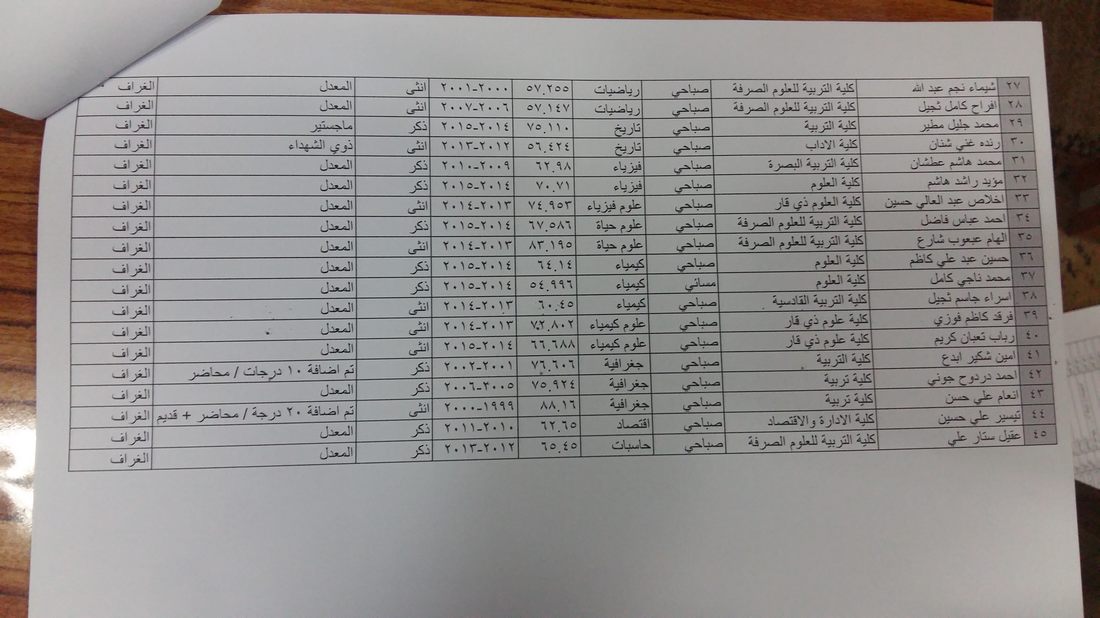 ٢٧ شيماء نجم عبد الله كلية التربية للعلوم الصرفة صباحي رياضيات ٥٧.٢٥٥ ٢٠٠٠-٢٠٠١ انثى المعدل الغراف
٢٨ افراح كامل ثجيل كلية التربية للعلوم الصرفة صباحي رياضيات ٥٧.١٤٧ ٢٠٠٦-٢٠٠٧ انثى المعدل الغراف
٢٩ محمد جليل مطير كلية التربية صباحي تاريخ ٧٥.١١٠ ٢٠١٤-٢٠١٥ ذكر ماجستير الغراف
٣٠ رنده غني شنان كلية الاداب صباحي تاريخ ٥٦.٤٢٤ ٢٠١٢-٢٠١٣ انثى ذوي الشهداء الغراف
٣١ محمد هاشم عطشان كلية التربية البصرة صباحي فيزياء ٦٢.٩٨ ٢٠٠٩-٢٠١٠ ذكر المعدل الغراف
٣٢ مؤيد راشد هاشم كلية العلوم صباحي فيزياء ٧٠.٧١ ٢٠١٤-٢٠١٥ ذكر المعدل الغراف
٣٣ اخلاص عبد العالي حسين كلية العلوم ذي قار صباحي علوم فيزياء ٧٤.٩٥٣ ٢٠١٣-٢٠١٤ انثى المعدل الغراف
٣٤ احمد عباس فاضل كلية التربية للعلوم الصرفة صباحي علوم حياة ٦٧.٥٨٦ ٢٠١٤-٢٠١٥ ذكر المعدل الغراف
٣٥ الهام عبعوب شارع كلية التربية للعلوم الصرفة صباحي علوم حياة ٨٣.١٩٥ ٢٠١٣-٢٠١٤ انثى المعدل الغراف
٣٦ حسين عبد علي كاظم كلية العلوم صباحي كيمياء ٦٤.١٤ ٢٠١٤-٢٠١٥ ذكر المعدل الغراف
٣٧ محمد ناجي كامل كلية العلوم مسائي كيمياء ٥٤.٩٩٦ ٢٠١٤-٢٠١٥ ذكر المعدل الغراف
٣٨ اسراء جاسم ثجيل كلية التربية القادسية صباحي كيمياء ٦٠.٤٥ ٢٠١٣-٢٠١٤ انثى المعدل الغراف
٣٩ فرقد كاظم فوزي كلية علوم ذي قار صباحي علوم كيمياء ٧٢.٨٠٢ ٢٠١٣-٢٠١٤ انثى المعدل الغراف
٤٠ رباب تعبان كريم كلية علوم ذي قار صباحي علوم كيمياء ٦٦.٦٨٨ ٢٠١٤-٢٠١٥ انثى المعدل الغراف
٤١ امين شكير ابدع كلية التربية صباحي جغرافية ٧٦.٦٠٦ ٢٠٠١-٢٠٠٢ ذكر تم اضافة ١٠ درجات / محاضر الغراف
٤٢ احمد دردوح جوني كلية تربية صباحي جغرافية ٧٥.٩٢٤ ٢٠٠٥-٢٠٠٦ ذكر المعدل الغراف
٤٣ انعام علي حسن كلية تربية صباحي جغرافية ٨٨.١٦ ١٩٩٩-٢٠٠٠ انثى تم اضافة ٢٠ درجة / محاضر + قديم الغراف
٤٤ تيسير علي حسين كلية الادارة والاقتصاد صباحي اقتصاد ٦٢.٦٥ ٢٠١٠-٢٠١١ ذكر المعدل الغراف
٤٥ عقيل ستار علي كلية التربية للعلوم الصرفة صباحي حاسبات ٦٥.٤٥ ٢٠١٢-٢٠١٣ ذكر المعدل الغراف